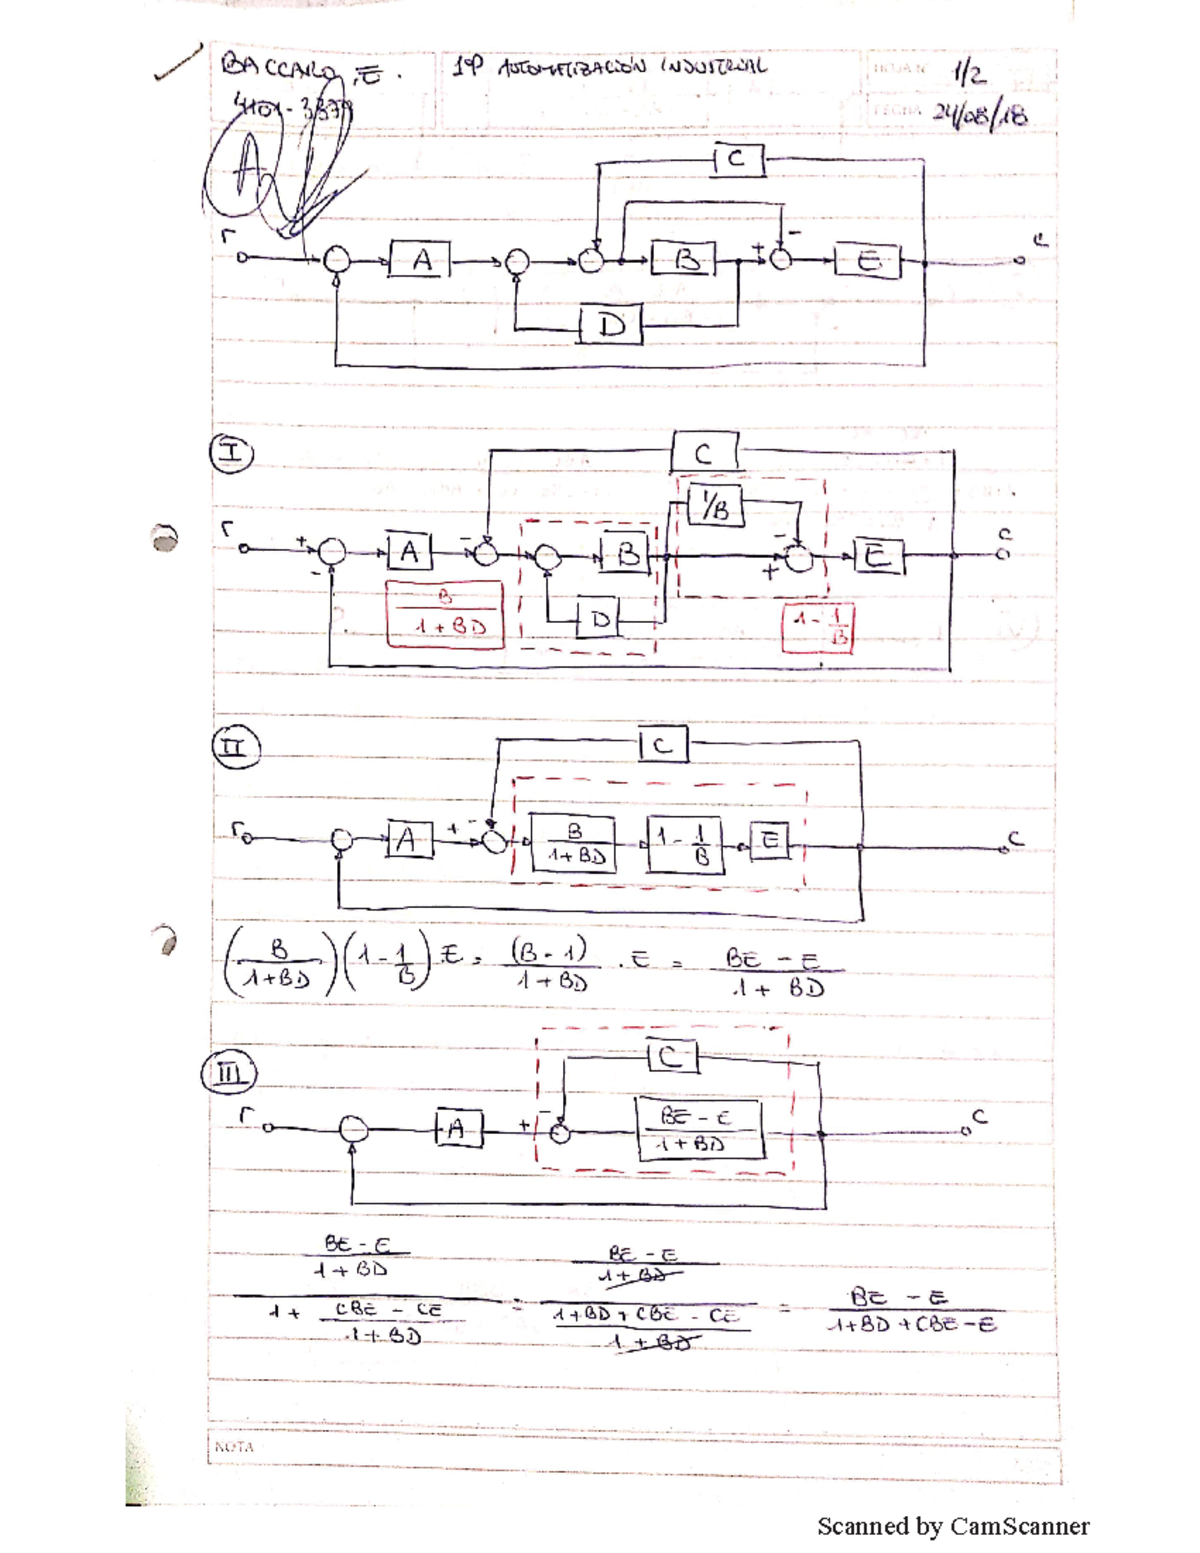 BACCARO, E. 1ºP AUTOMATIZACIÓN INDUSTRIAL HOJA Nº 1/2
FECHA 24/08/18
A
C
r A B + - E c
D
I
C
1/B
r + - A - B - + E c
B/(1+BD) D 1 - 1/B
II
C
r A + - B/(1+BD) 1 - 1/B E c
(B/(1+BD)) (1 - 1/B) E = (B - 1)/(1+BD) . E = (BE - E)/(1 + BD)
III
C
r A + - (BE - E)/(1+BD) c
((BE - E)/(1+BD))/(1 + (CBE - CE)/(1+BD)) = ((BE - E)/(1+BD))/((1+BD+CBE - CE)/(1+BD)) = (BE - E)/(1+BD+CBE-E)
NOTA
Scanned by CamScanner